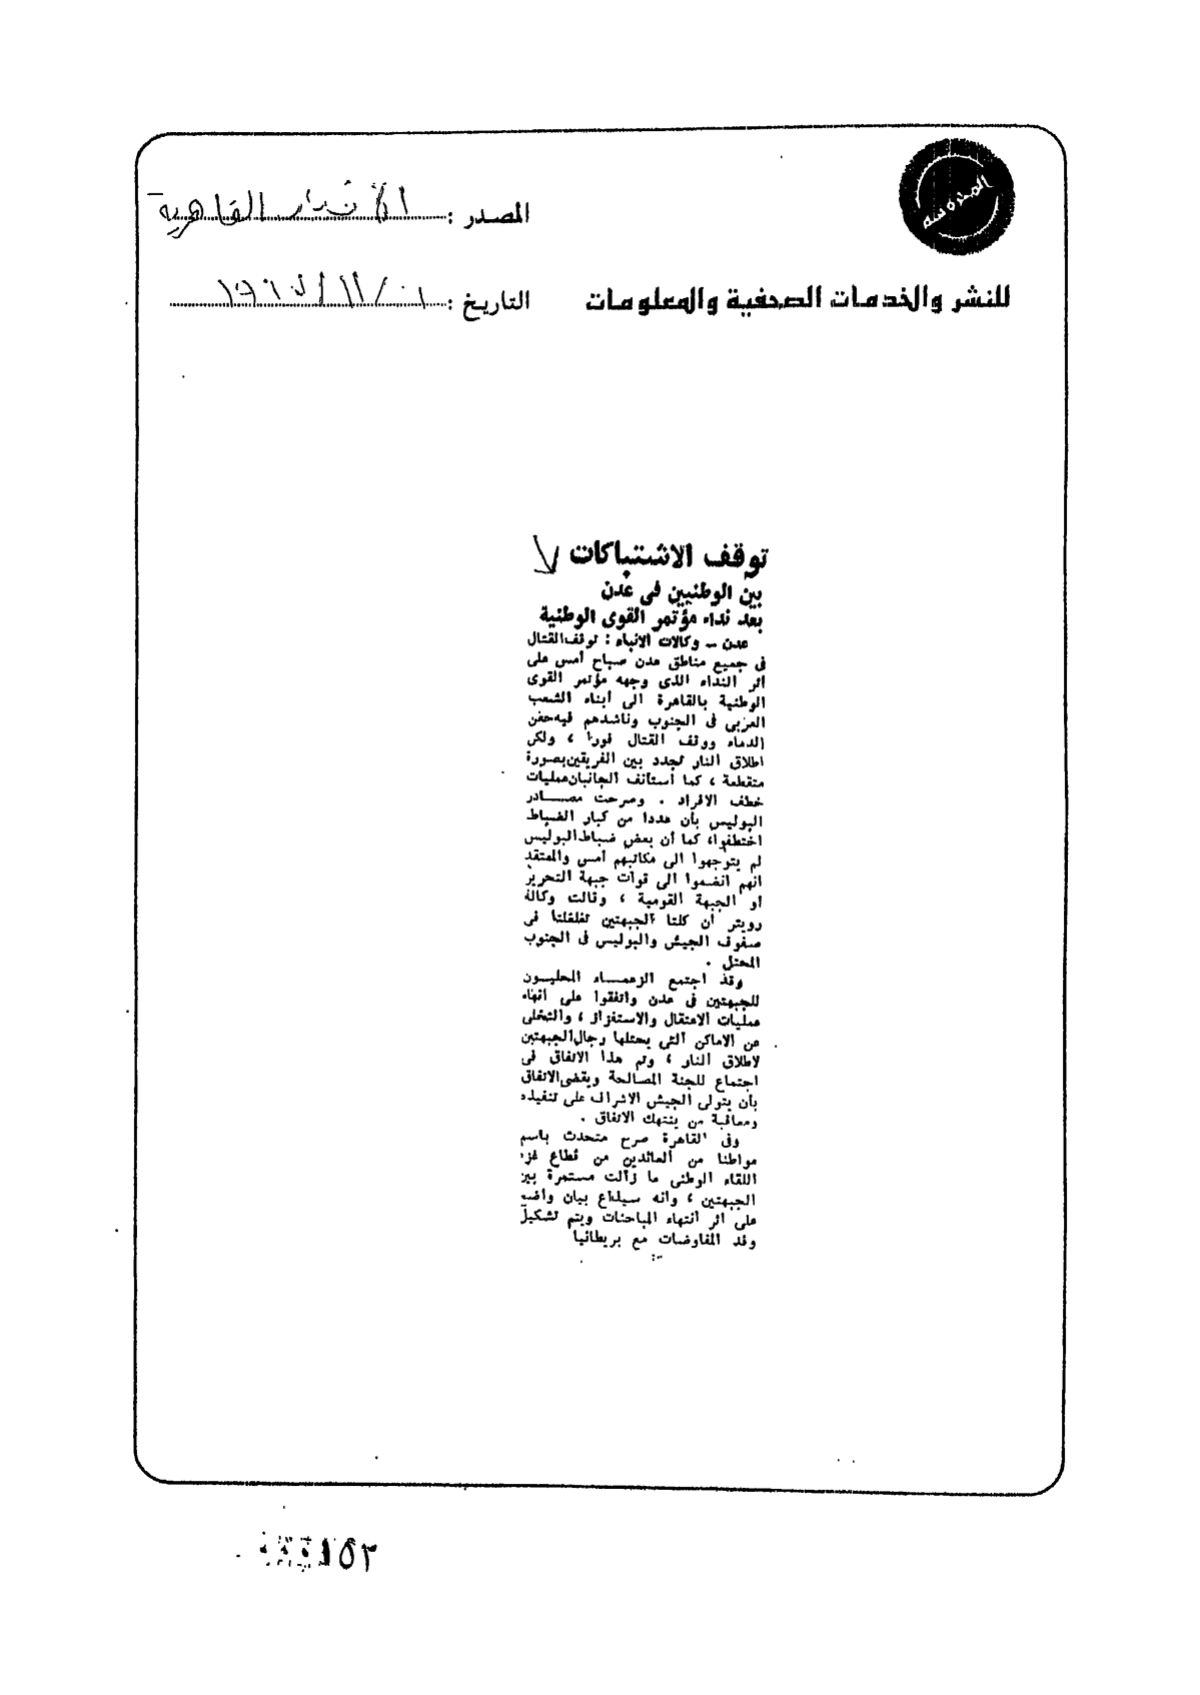 المصدر : الأخبار القاهرية
للنشر والخدمات الصحفية والمعلومات
التاريخ :
توقف الاشتباكات
بين الوطنيين فى عدن
بعد نداء مؤتمر القوى الوطنية
عدن ــ وكالات الانباء : توقف القتال
فى جميع مناطق عدن صباح أمس على
اثر النداء الذى وجهه مؤتمر القوى
الوطنية بالقاهرة الى أبناء الشعب
العربى فى الجنوب وناشدهم فيه حقن
الدماء ووقف القتال فورا ، ولكن
اطلاق النار تجدد بين الفريقين بصورة
متقطعة ، كما استأنف الجانبان عمليات
خطف الافراد . وصرحت مصـــادر
البوليس بأن عددا من كبار الضباط
اختطفوا، كما أن بعض ضباط البوليس
لم يتوجهوا الى مكاتبهم أمس والمعتقد
انهم انضموا الى قوات جبهة التحرير
او الجبهة القومية ، وقالت وكالة
رويتر ان كلتا الجبهتين تغلغلتا فى
صفوف الجيش والبوليس فى الجنوب
المحتل .
وقد اجتمع الزعمـــاء المحليــون
للجبهتين فى عدن واتفقوا على انهاء
عمليات الاعتقال والاستفزاز ، والتخلى
عن الاماكن التى يحتلها رجال الجبهتين
لاطلاق النار ، وتم هذا الاتفاق فى
اجتماع للجنة المصالحة ويقضى الاتفاق
بأن يتولى الجيش الاشراف على تنفيذه
ومعاقبة من ينتهك الاتفاق .
وفى القاهرة صرح متحدث باسم
مواطنا من العائدين من قطاع غزة
اللقاء الوطنى ما زالت مستمرة بين
الجبهتين ، وانه سيذاع بيان واضح
على اثر انتهاء المباحثات ويتم تشكيل
وفد المفاوضات مع بريطانيا